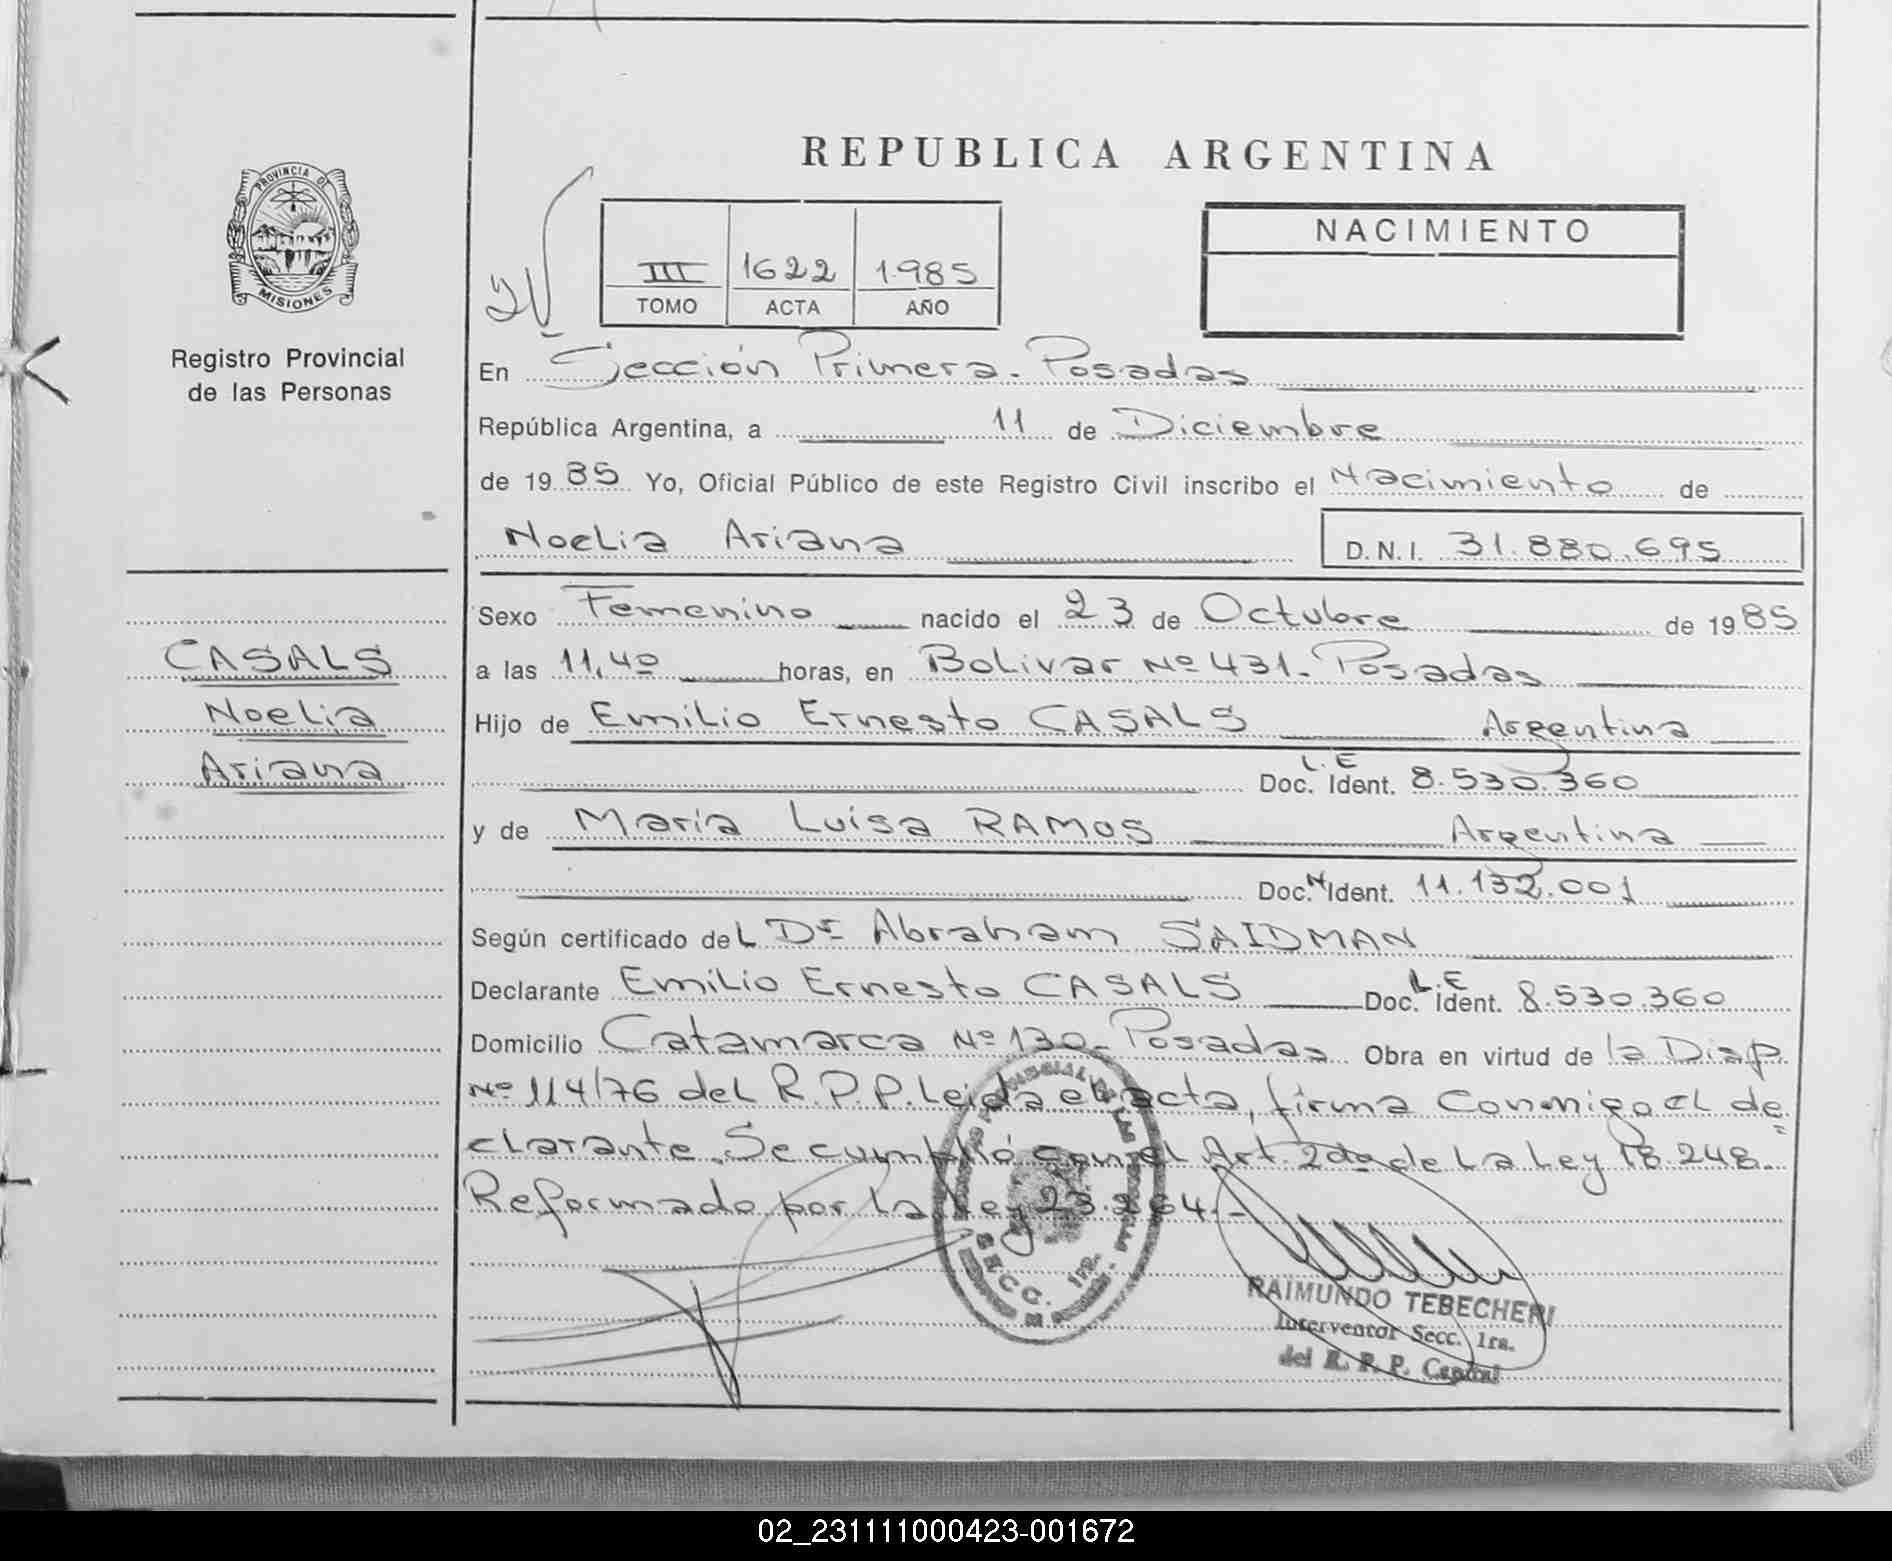 REPUBLICA ARGENTINA
PROVINCIA DE
MISIONES
Registro Provincial
de las Personas
III 1622 1.985
TOMO ACTA AÑO
NACIMIENTO
En Sección Primera. Posadas
República Argentina, a 11 de Diciembre
de 19 85 Yo, Oficial Público de este Registro Civil inscribo el Nacimiento de
Noelia Ariana D.N.I. 31.880.695
Sexo Femenino nacido el 23 de Octubre de 19 85
CASALS
Noelia
Ariana
a las 11,40 horas, en Bolivar Nº 431. Posadas
Hijo de Emilio Ernesto CASALS Argentina
Doc. Ident. L.E 8.530.360
y de Maria Luisa RAMOS Argentina
Doc. Ident. 11.132.001
Según certificado del Dr Abraham SAIDMAN
Declarante Emilio Ernesto CASALS Doc. Ident. L.E 8.530.360
Domicilio Catamarca Nº 130. Posadas Obra en virtud de la Disp.
Nº 114/76 del R.P.P. Leida el acta, firma conmigo el de=
clarante. Se cumplió con el Art. 2do de la Ley 18.248.
Reformado por la Ley 23.264.-
SECC. 1ra.
RAIMUNDO TEBECHERI
Interventor Secc. 1ra.
del R. P. P. Capital
02_231111000423-001672